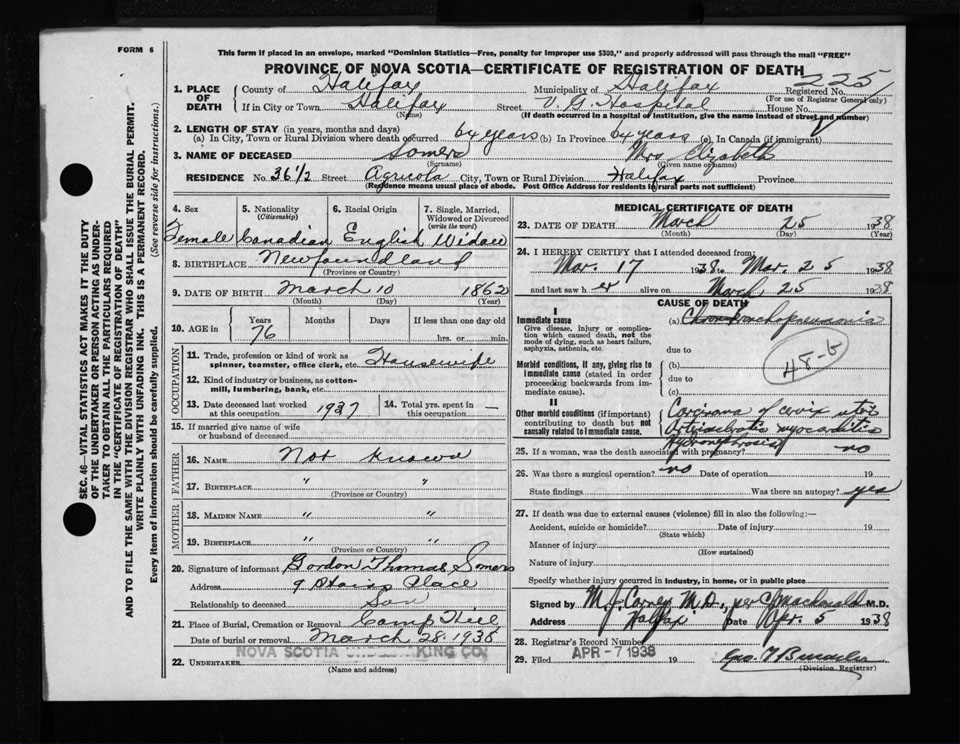 FORM 6
This form if placed in an envelope, marked "Dominion Statistics—Free, penalty for improper use $300," and properly addressed will pass through the mail "FREE"
PROVINCE OF NOVA SCOTIA—CERTIFICATE OF REGISTRATION OF DEATH
225
1. PLACE OF DEATH County of Halifax Municipality of Halifax Registered No.
(For use of Registrar General only)
If in City or Town Halifax Street V. G. Hospital House No.
(Name) (If death occurred in a hospital or institution, give the name instead of street and number)
2. LENGTH OF STAY (in years, months and days)
(a) In City, Town or Rural Division where death occurred 64 years (b) In Province 64 years (c) In Canada (if immigrant)
3. NAME OF DECEASED Somers Mrs Elizabeth
(Surname) (Given name or names)
RESIDENCE No. 36 1/2 Street Agricola City, Town or Rural Division Halifax Province
(Residence means usual place of abode. Post Office Address for residents in rural parts not sufficient)
4. Sex 5. Nationality (Citizenship) 6. Racial Origin 7. Single, Married, Widowed or Divorced (write the word)
Female Canadian English Widow
8. BIRTHPLACE Newfoundland
(Province or Country)
9. DATE OF BIRTH March 10 1862
(Month) (Day) (Year)
10. AGE in Years Months Days If less than one day old
76 hrs. or min.
OCCUPATION
11. Trade, profession or kind of work as spinner, teamster, office clerk, etc. Housewife
12. Kind of industry or business, as cotton-mill, lumbering, bank, etc.
13. Date deceased last worked at this occupation 1937 14. Total yrs. spent in this occupation —
15. If married give name of wife or husband of deceased
FATHER
16. NAME Not known
17. BIRTHPLACE " "
(Province or Country)
MOTHER
18. MAIDEN NAME " "
19. BIRTHPLACE " "
(Province or Country)
20. Signature of informant Gordon Thomas Somers
Address 9 Stairs Place
Relationship to deceased Son
21. Place of Burial, Cremation or Removal Camp Hill
Date of burial or removal March 28 1938
NOVA SCOTIA UNDERTAKING CO.
22. UNDERTAKER
(Name and address)
MEDICAL CERTIFICATE OF DEATH
23. DATE OF DEATH March 25 1938
(Month) (Day) (Year)
24. I HEREBY CERTIFY that I attended deceased from:
Mar. 17 1938 to Mar. 25 1938
and last saw her alive on March 25 1938
CAUSE OF DEATH
I
Immediate cause (a)
Give disease, injury or complication which caused death, not the mode of dying, such as heart failure, asphyxia, asthenia, etc.
due to
48-b
Morbid conditions, if any, giving rise to immediate cause (stated in order proceeding backwards from immediate cause).
(b)
due to
(c)
II
Other morbid conditions (if important) contributing to death but not causally related to immediate cause.
of cervix
myocarditis
Hydronephrosis
25. If a woman, was the death associated with pregnancy? no
26. Was there a surgical operation? no Date of operation 19
State findings Was there an autopsy? yes
27. If death was due to external causes (violence) fill in also the following:—
Accident, suicide or homicide? Date of injury 19
(State which)
Manner of injury
(How sustained)
Nature of injury
Specify whether injury occurred in industry, in home, or in public place
Signed by M. J. Carney M.D., per C Macdonald M.D.
Address Halifax Date Apr. 5 1938
28. Registrar's Record Number
29. Filed APR -7 1938 19
(Division Registrar)
SEC. 46—VITAL STATISTICS ACT MAKES IT THE DUTY
OF THE UNDERTAKER OR PERSON ACTING AS UNDER-
TAKER TO OBTAIN ALL THE PARTICULARS REQUIRED
IN THE "CERTIFICATE OF REGISTRATION OF DEATH"
AND TO FILE THE SAME WITH THE DIVISION REGISTRAR WHO SHALL ISSUE THE BURIAL PERMIT.
WRITE PLAINLY WITH UNFADING INK. THIS IS A PERMANENT RECORD.
Every item of information should be carefully supplied. (See reverse side for instructions.)